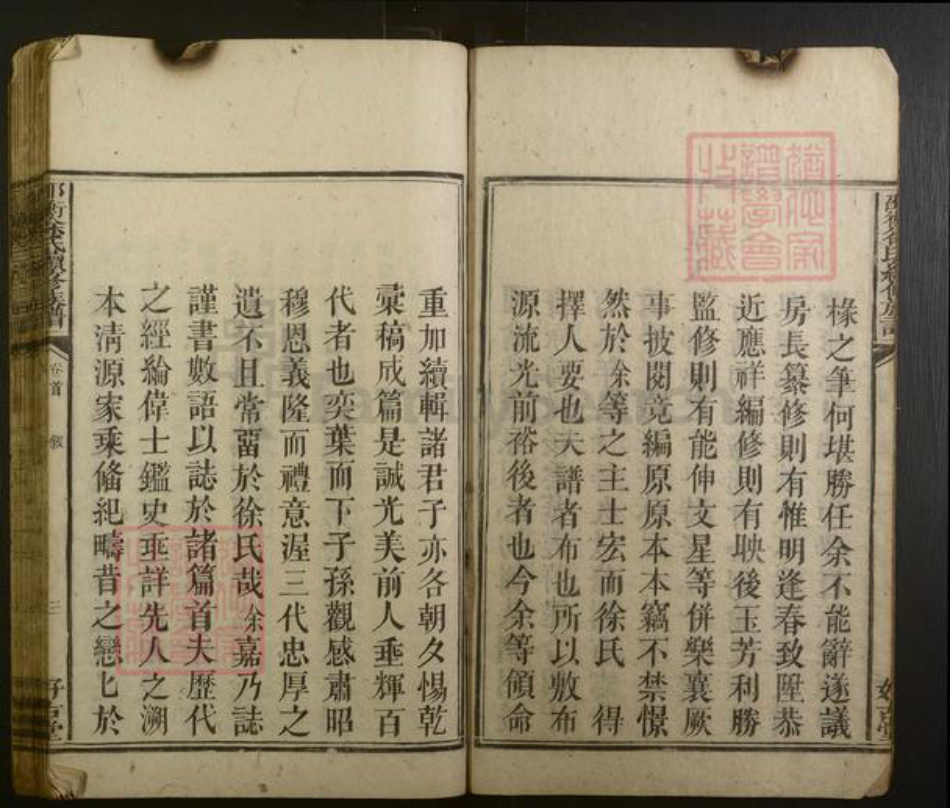 椽之筆何堪勝任余不能辭遂議
房長纂修則有惟明逢春致陞恭
近應祥編修則有映後玉芳利勝
監修則有能伸文星等併樂襄厥
事披閱竞編原原本本竊不禁憬
然於余等之主士宏而徐氏 得
擇人要也夫譜者布也所以敷布
源流光前裕後者也今余等傾命
重加續輯諸君子亦各朝夕惕乾
彚稿成篇是誠光美前人垂輝百
代者也奕葉而下子孫觀感肅昭
穆恩義隆而禮意渥三代忠厚之
遺不且常畱於徐氏哉余嘉乃誌
謹書數語以誌於諸篇首夫歷代
之經綸偉士鑑史亟詳先人之溯
本淸源家乘俻紀疇昔之戀七於
徐氏續修族譜
卷首
敘
三